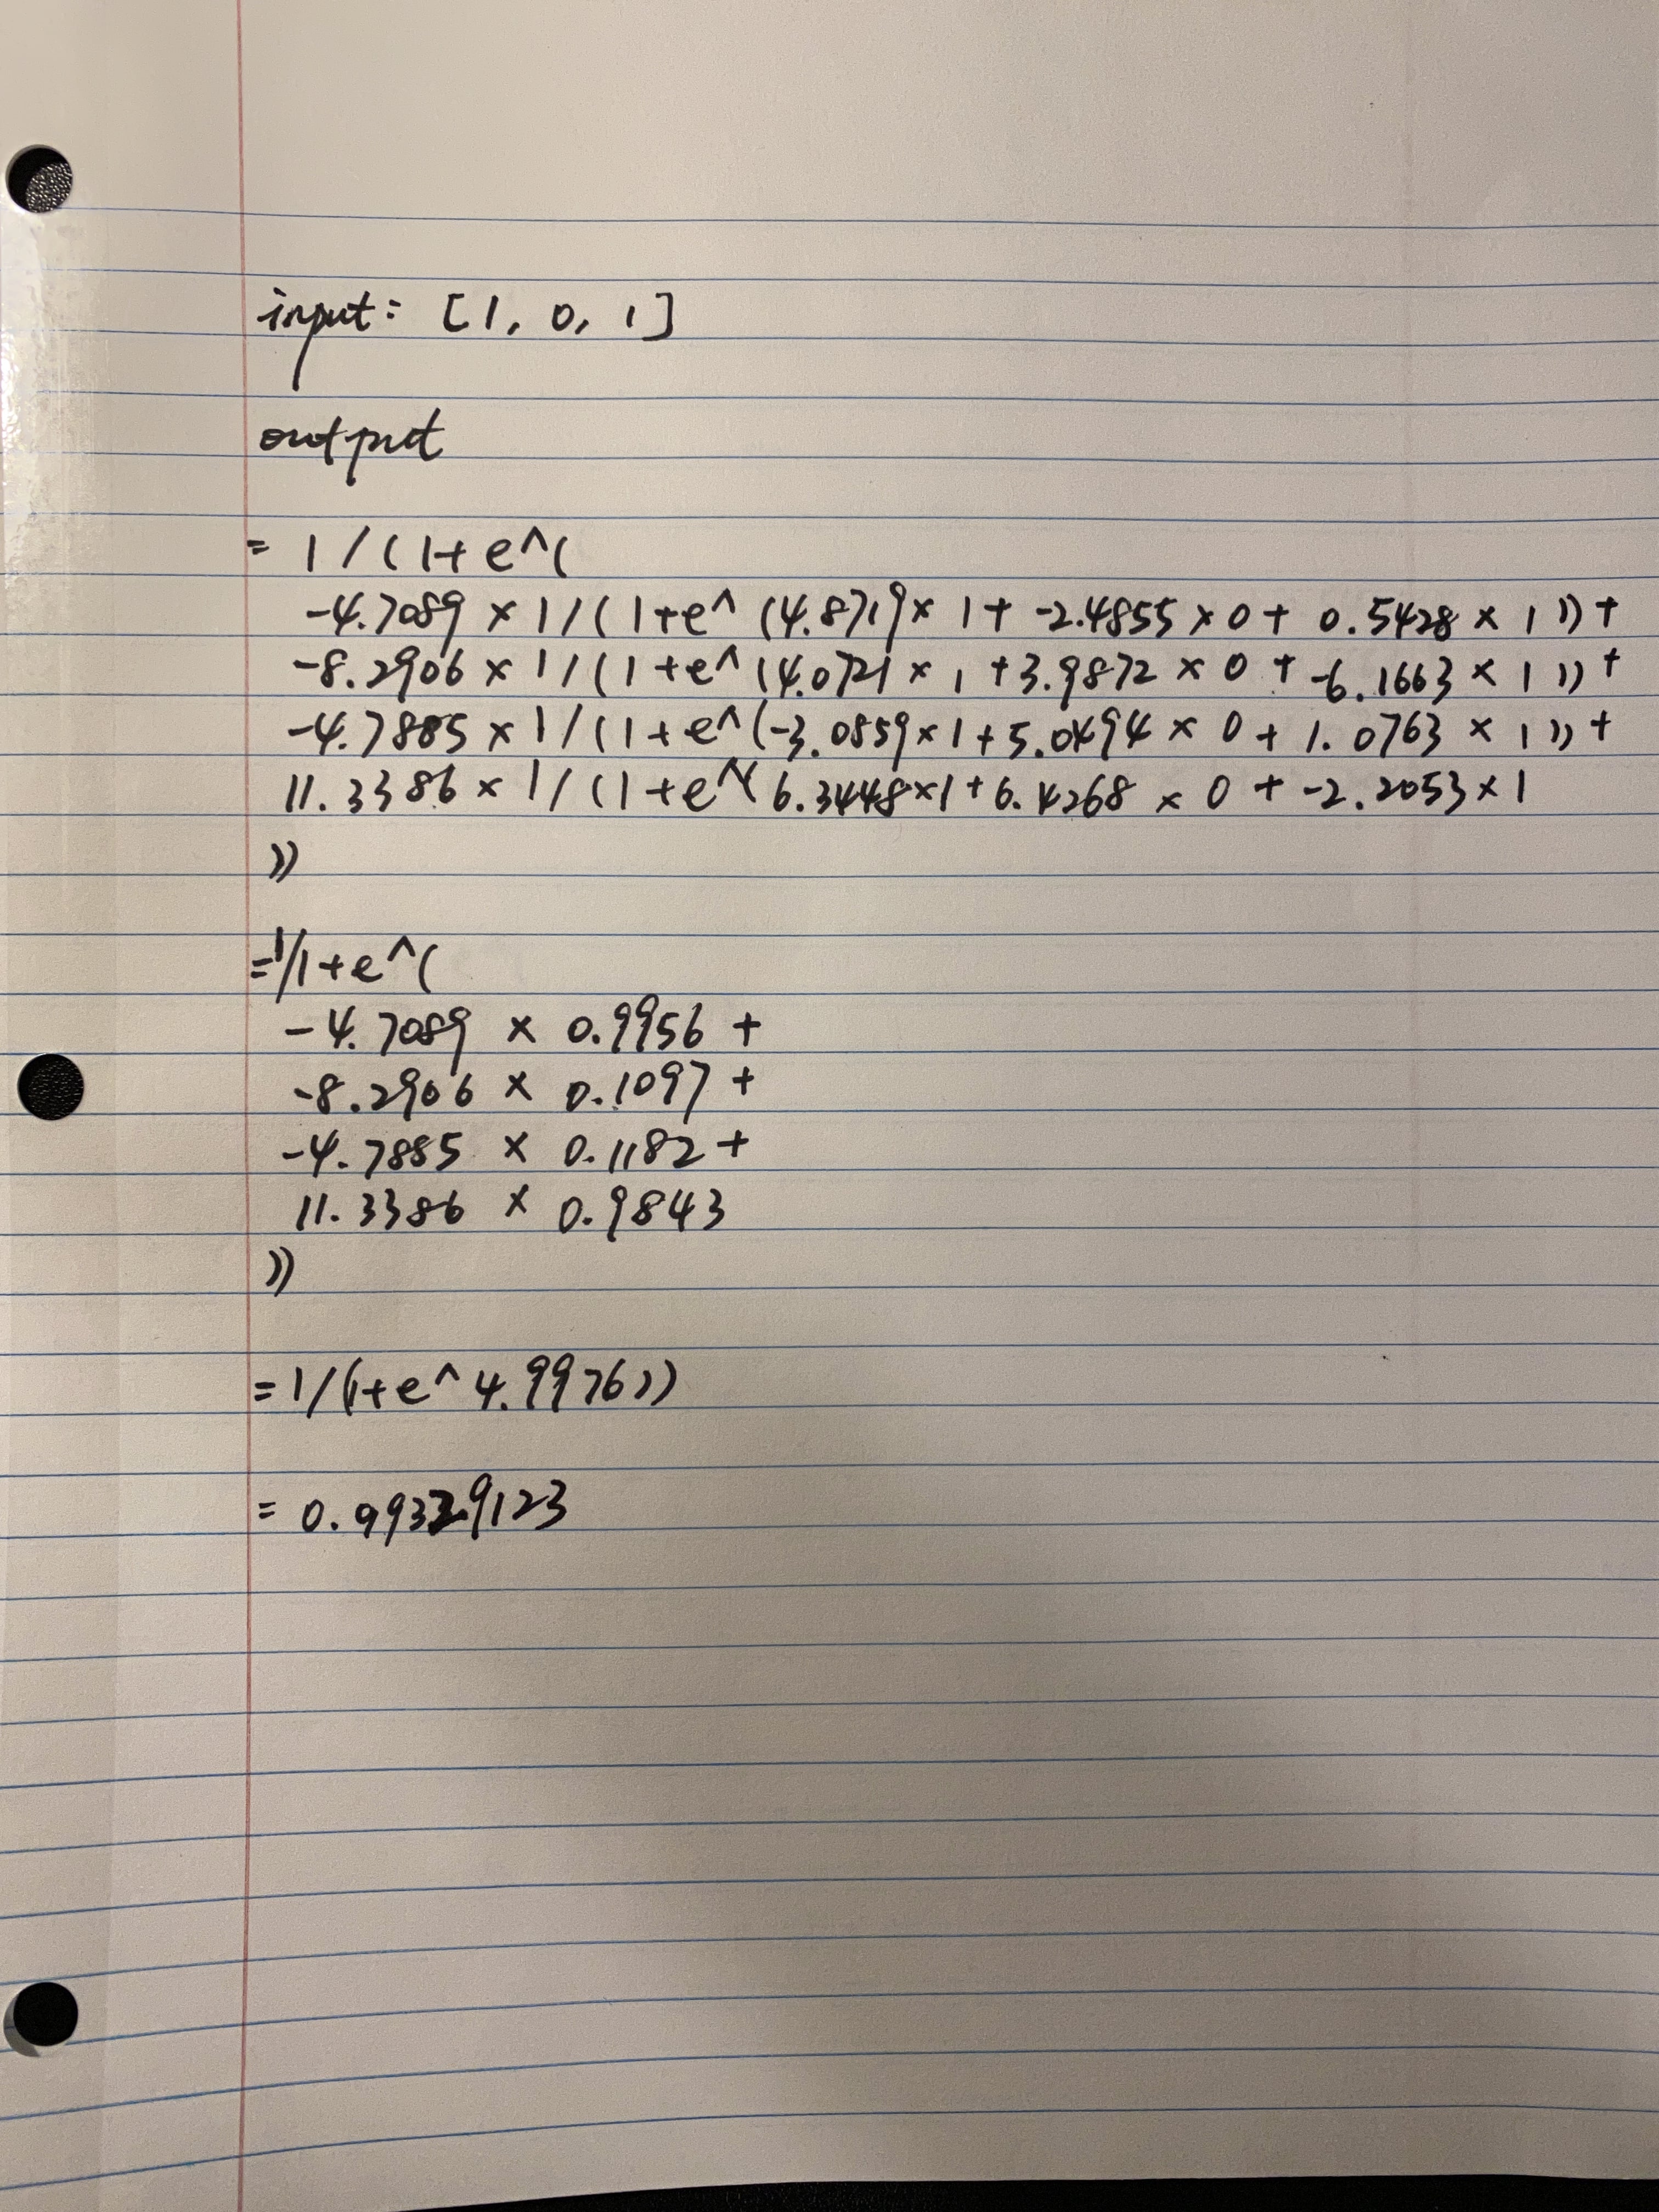 input: [1, 0, 1]
output
= 1 / ( 1 + e^(
-4.7089 × 1 / ( 1 + e^ (4.8719 × 1 + -2.4855 × 0 + 0.5428 × 1 )) +
-8.2906 × 1 / ( 1 + e^ (4.0721 × 1 + 3.9872 × 0 + -6.1663 × 1 )) +
-4.7885 × 1 / ( 1 + e^ (-3.0859 × 1 + 5.0494 × 0 + 1.0763 × 1 )) +
11.3386 × 1 / ( 1 + e^( 6.3448 × 1 + 6.4268 × 0 + -2.2053 × 1
))
= 1/1 + e^(
-4.7089 × 0.9956 +
-8.2906 × 0.1097 +
-4.7885 × 0.1182 +
11.3386 × 0.9843
))
= 1 / (1 + e^ 4.9976 ))
= 0.99329123